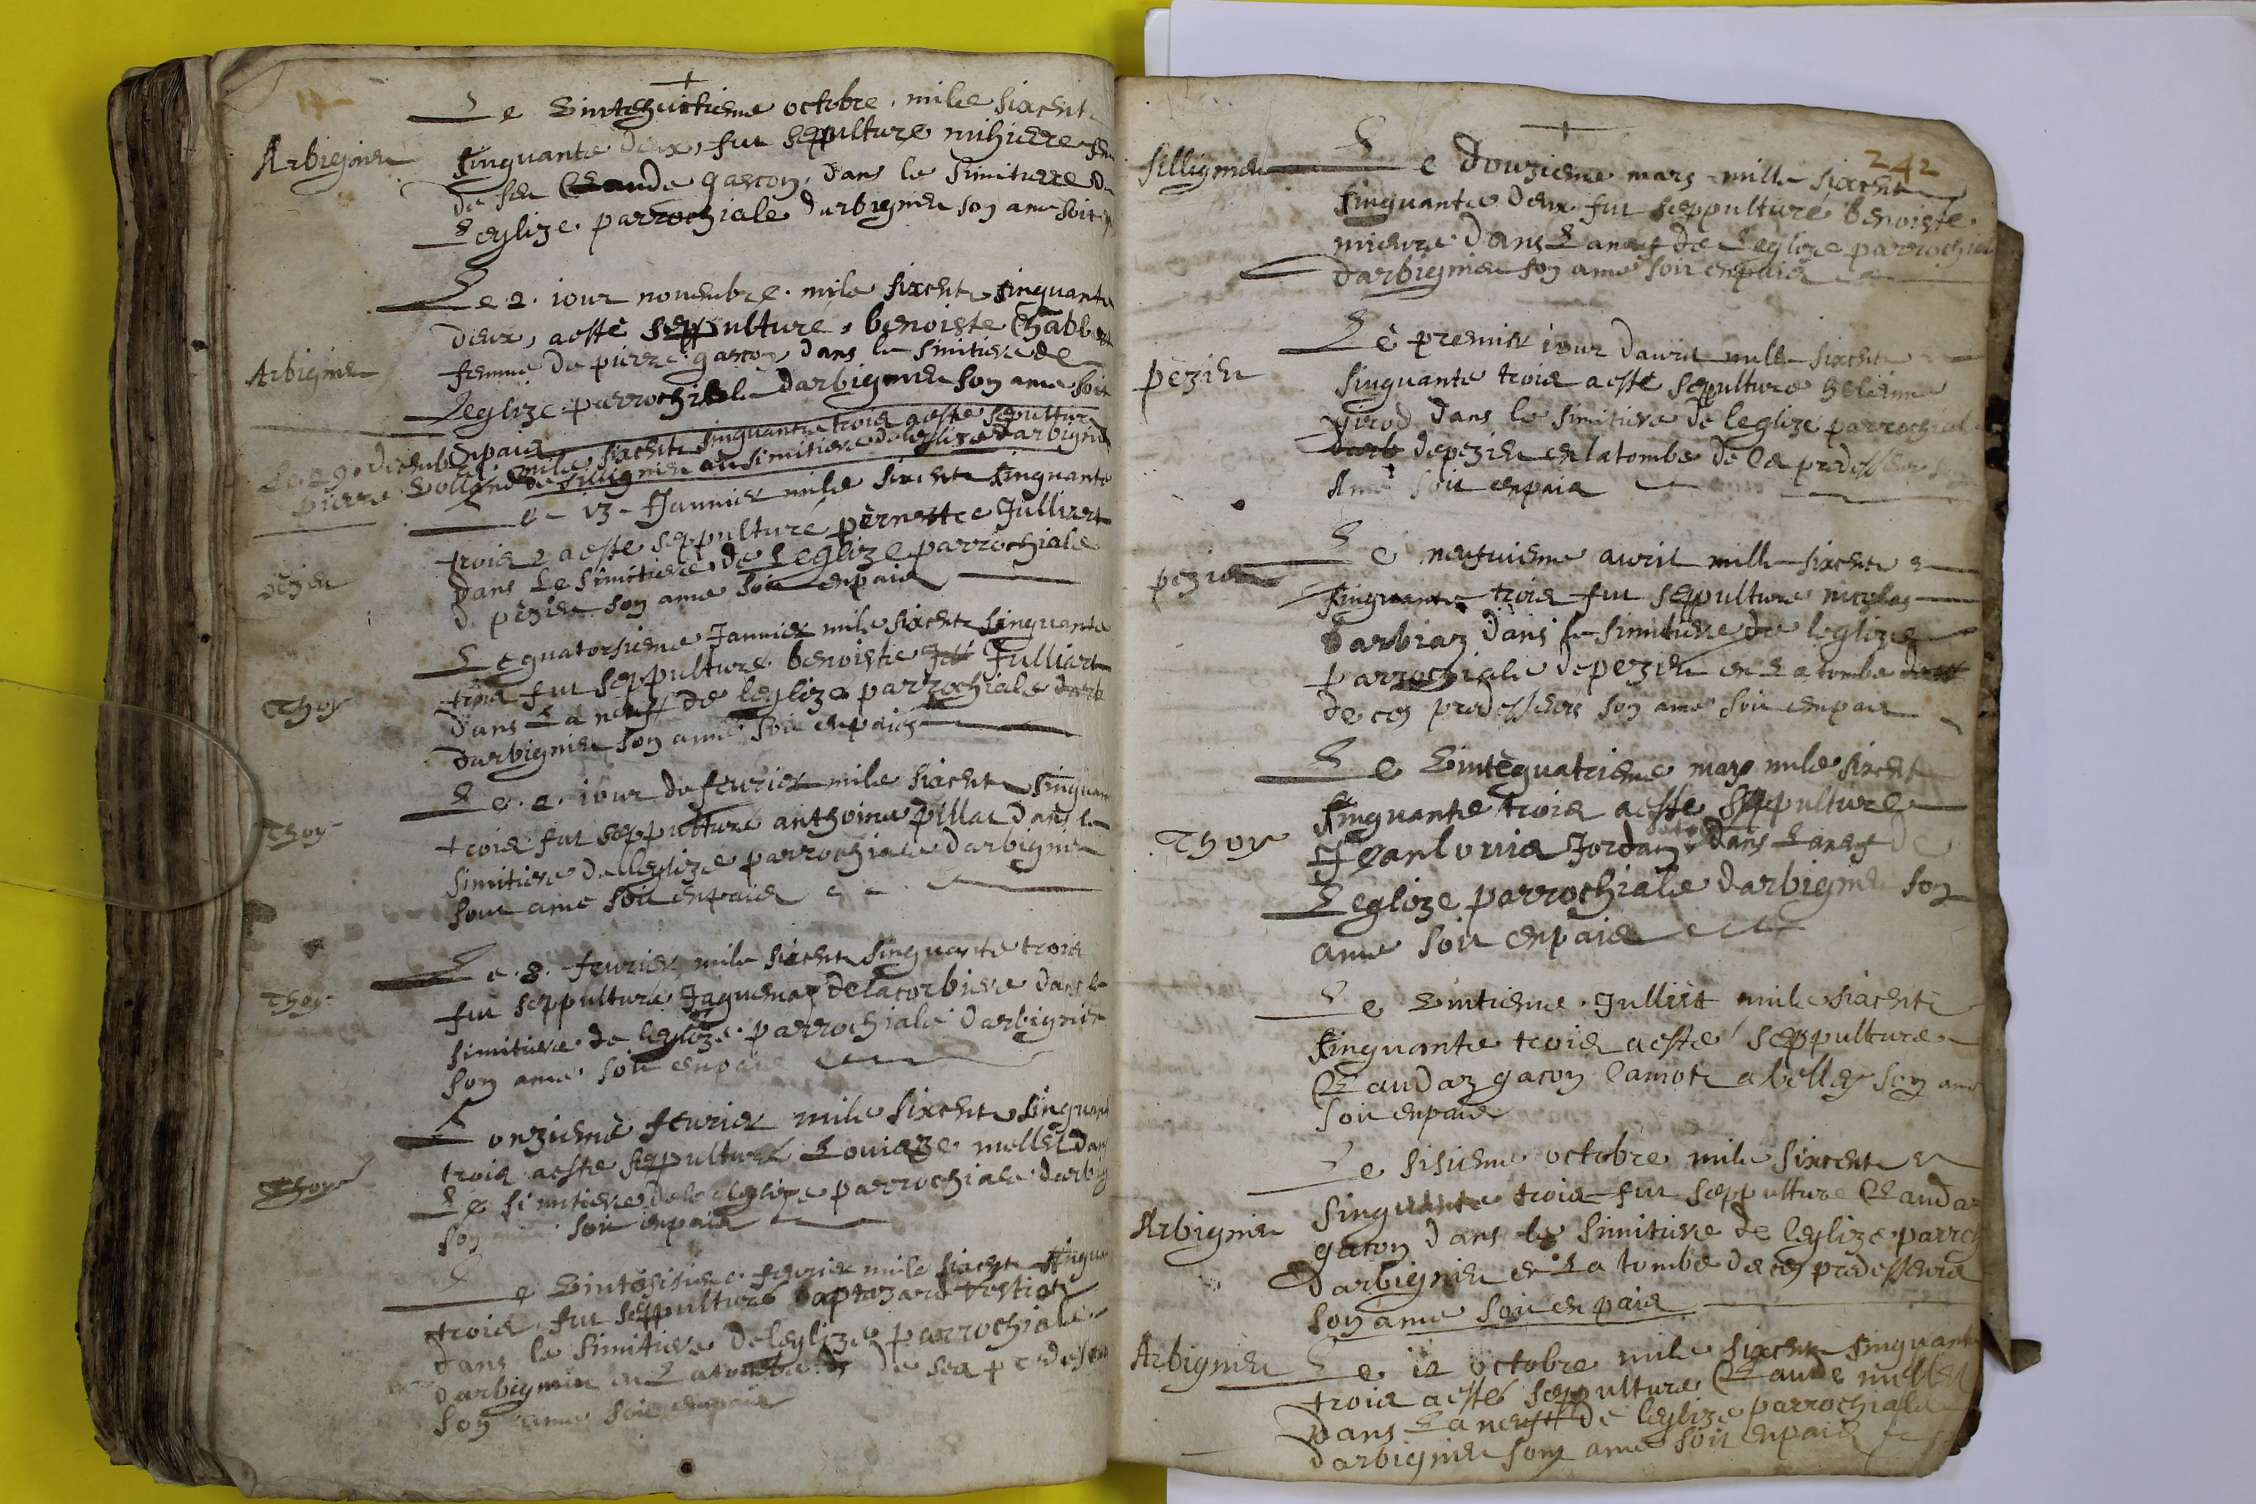 17
+
Arbignieu
Le Vintehuictieme octobre mile sixcent
sinquante deux, fut sepulture mihiere fe
de feu Claude gascon, dans le simitiere d
Leglize parrochiale darbignieu son ame soit
Arbignieu
Le 2 iour novembre mile sixcent sinquante
deux, aesté sepulture, benoiste Chabb
femme de pierre gascon dans le simitiere de
Leglize parrochialle darbignieu son ame soit
enpaix
Le 29 decembre mile sixcent sinquante trois aeste sepulture
pierre de sillignieu au simitiere de leglize darbignieu
pezieu
Le 13 Janvier mile sixcent sinquante
trois aeste seppulturé pernette Julliert
dans Le simitiere de Leglize parrochiale
d pezieu son ame soit enpaix
Thoy
Le quatorsieme Janvier mile sixcent sinquante
trois fut seppulturé benoiste Julliert
dans La neuf de leglize parrochiale darb
darbignieu son ame soit enpaix
Thoy
Le 2 iour de fevrier mile sixcent sinquant
trois fut seppulturé anthoine pillat dans le
simitiere delleglize parrochiale darbignieu
sont ame soit enpaix
Thoy
Le 8 fevrier mile sixcent sinquante trois
fut seppulturé Jaquemaz delacorbiere dans le
simitiere de leglize parrochiale darbignieu
son ame soit enpaix
Thoy
L onzieme fevrier mile sixcent sinquant
trois aeste sepulturé Louieze mollet dans
Le simitiere de leglize parrochiale darbig
son ame soit enpaix
Le Vintesisieme fevrier mile sixcent sinqua
trois fut sepulturé
dans le simitiere de leglize parrochiale
darbignieu en La tombe de ses
son ame soit enpaix
242
+
sillignieu
Le douzieme mars mille sixcent
sinquante deux fut seppulturé benoiste
mieure dans La neuf de Leglize parrochia
darbignieu son ame soit enpaix
pezieu
Le premier iour davril mille sixcent
sinquante trois aesté sepulture heleinne
girod dans le simitiere de leglize parrochial
darb depezieu en la tombe de
Ame soit enpaix
pezieu
Le neufvieme avril mille sixcent
sinquante trois fut sepulture nicolas
barbiaz dans le simitiere de leglize
parrochiale depezieu en La tombe
de ces predesseurs son ame soit enpaix
Thoy
Le Vintequatrieme mars mile sixcent
sinquante trois aeste sepulture
Jeanlouis Jordan dans La neuf de
Leglize parrochiale darbignieu son
ame soit enpaix
Le Vintieme Julliet mile sixcent
sinquante trois aesté seppulture
Claudaz gacon a belley son ame
soit enpaix
Arbignieu
Le sisieme octobre mile sixcent
sinquante trois fut seppulture Claudaz
gacon dans le simitiere de leglize parroch
darbignieu en La tombe de ces predesseurs
son ame soit en paix
Arbignieu
Le 12 octobre mile sixcent sinquant
trois aesté seppulture Claude mollet
dans La neuf de leglize parrochialle
darbignieu sont ame soit enpaix